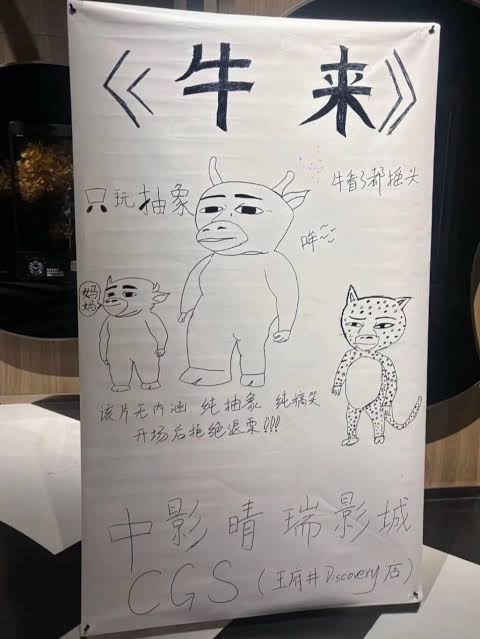 《牛来》
只玩抽象
牛看了都摇头
哞~~
妈妈
该片无内涵 纯抽象 纯搞笑
开场后拒绝退票!!!
中影晴瑞影城
CGS(王府井Discovery店)